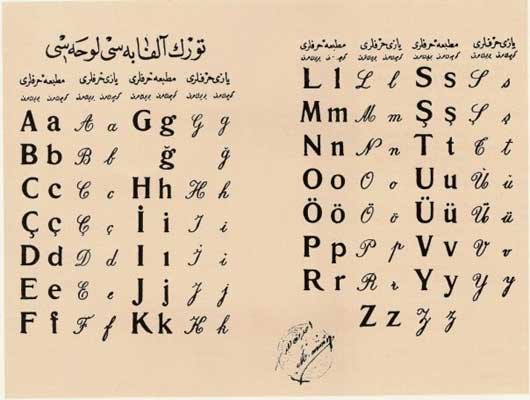 تورك آلفابه سی لوحه سی
مطبعه حرفلری يازی حرفلری مطبعه حرفلری يازی حرفلری
A a A a G g G g
B b B b ğ ğ
C c C c H h H h
Ç ç Ç ç İ i İ i
D d D d I ı I ı
E e E e J j J j
F f F f K k K k
مطبعه حرفلری يازی حرفلری مطبعه حرفلری يازی حرفلری
L l L l S s S s
M m M m Ş ş Ş ş
N n N n T t T t
O o O o U u U u
Ö ö Ö ö Ü ü Ü ü
P p P p V v V v
R r R r Y y Y y
Z z Z z